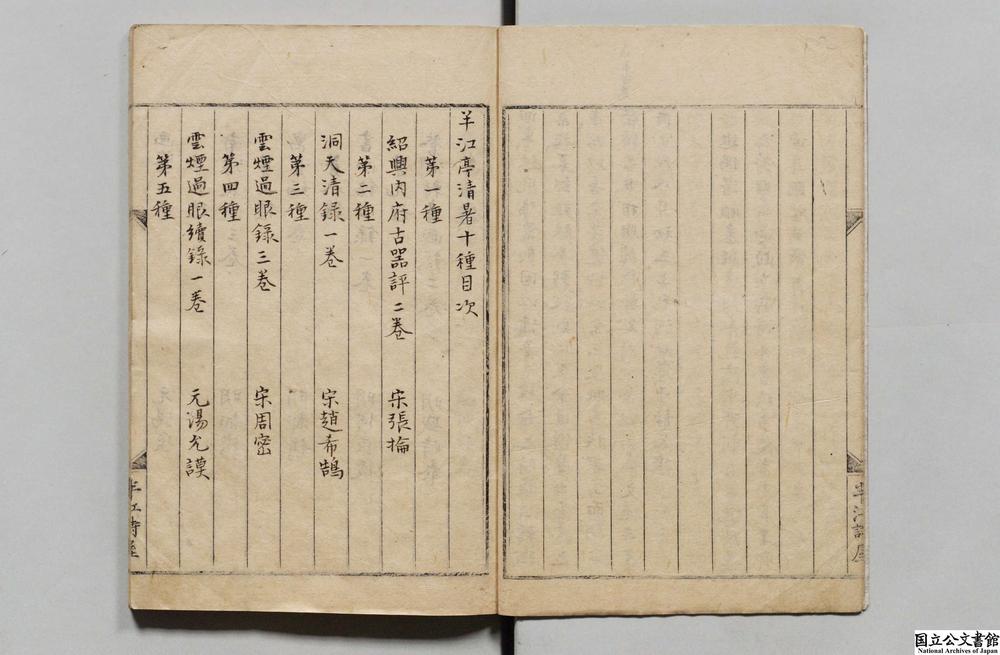 半江亭清暑十種目次
第一種
紹興內府古器評二卷 宋張掄
第二種
洞天清錄一卷 宋趙希鵠
第三種
雲煙過眼錄三卷 宋周密
第四種
雲煙過眼續錄一卷 元湯允謨
第五種
国立公文書館
National Archives of Japan